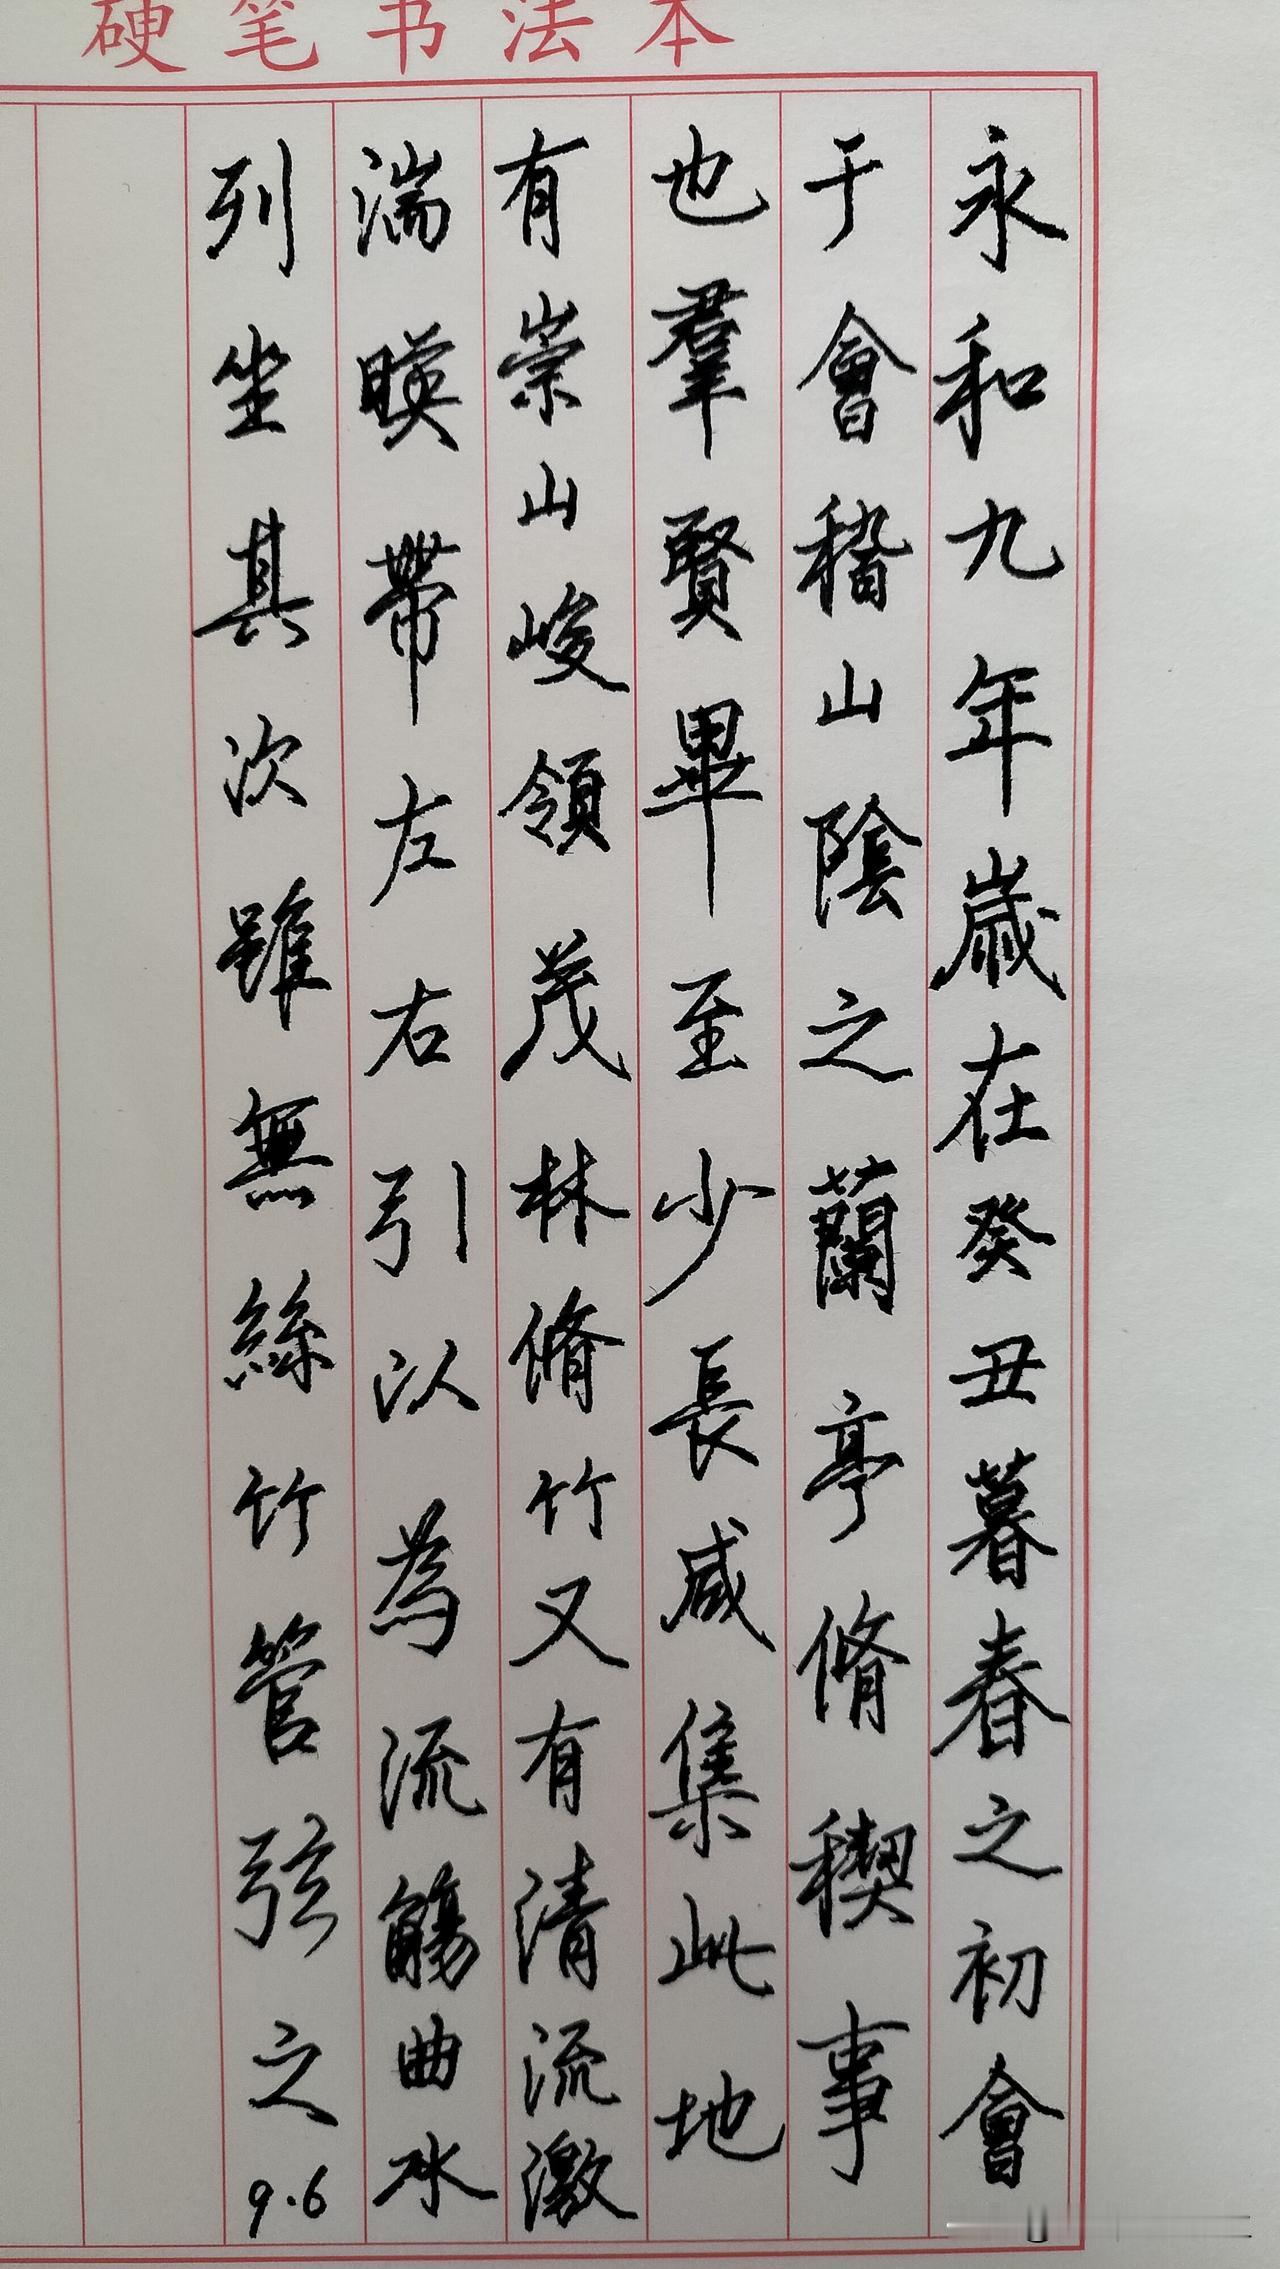 硬笔书法本
永和九年歲在癸丑暮春之初會
于會稽山陰之蘭亭脩稧事
也羣賢畢至少長咸集此地
有崇山峻領茂林脩竹又有清流激
湍暎帶左右引以為流觴曲水
列坐其次雖無絲竹管弦之
9.6